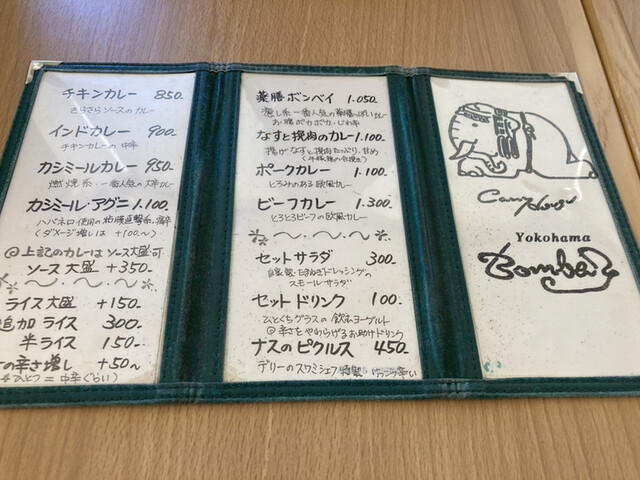 チキンカレー 850-
さらさらソースのカレー
インドカレー 900-
チキンカレーの中辛
カシミールカレー 950-
燃焼系・一番人気の大辛カレー
カシミール・アグニ 1.100-
ハバネロ使用の 激辛
(ダメージ増しは +100〜)
@上記のカレーは ソース大盛・可
ソース大盛 +350-
ライス大盛 +150-
追加ライス 300-
半ライス 150-
の辛さ増し +50〜
ひとつ=中辛ぐらい)
薬膳ボンベイ 1.050-
癒し系一番人気の薬膳っぽいカレー
お腹ポカポカ・じわ辛
なすと挽肉のカレー 1.100-
揚げなすと挽肉たっぷり、甘め
ポークカレー 1.100-
とろみのある欧風カレー
ビーフカレー 1.300-
とろとろビーフの欧風カレー
セットサラダ 300-
自家製・たまねぎドレッシングの
スモールサラダ
セットドリンク 100-
ひとくちグラスの飲むヨーグルト
@辛さをやわらげるお助けドリンク
ナスのピクルス 450-
デリーのスワミシェフ特製
Yokohama
Bombay